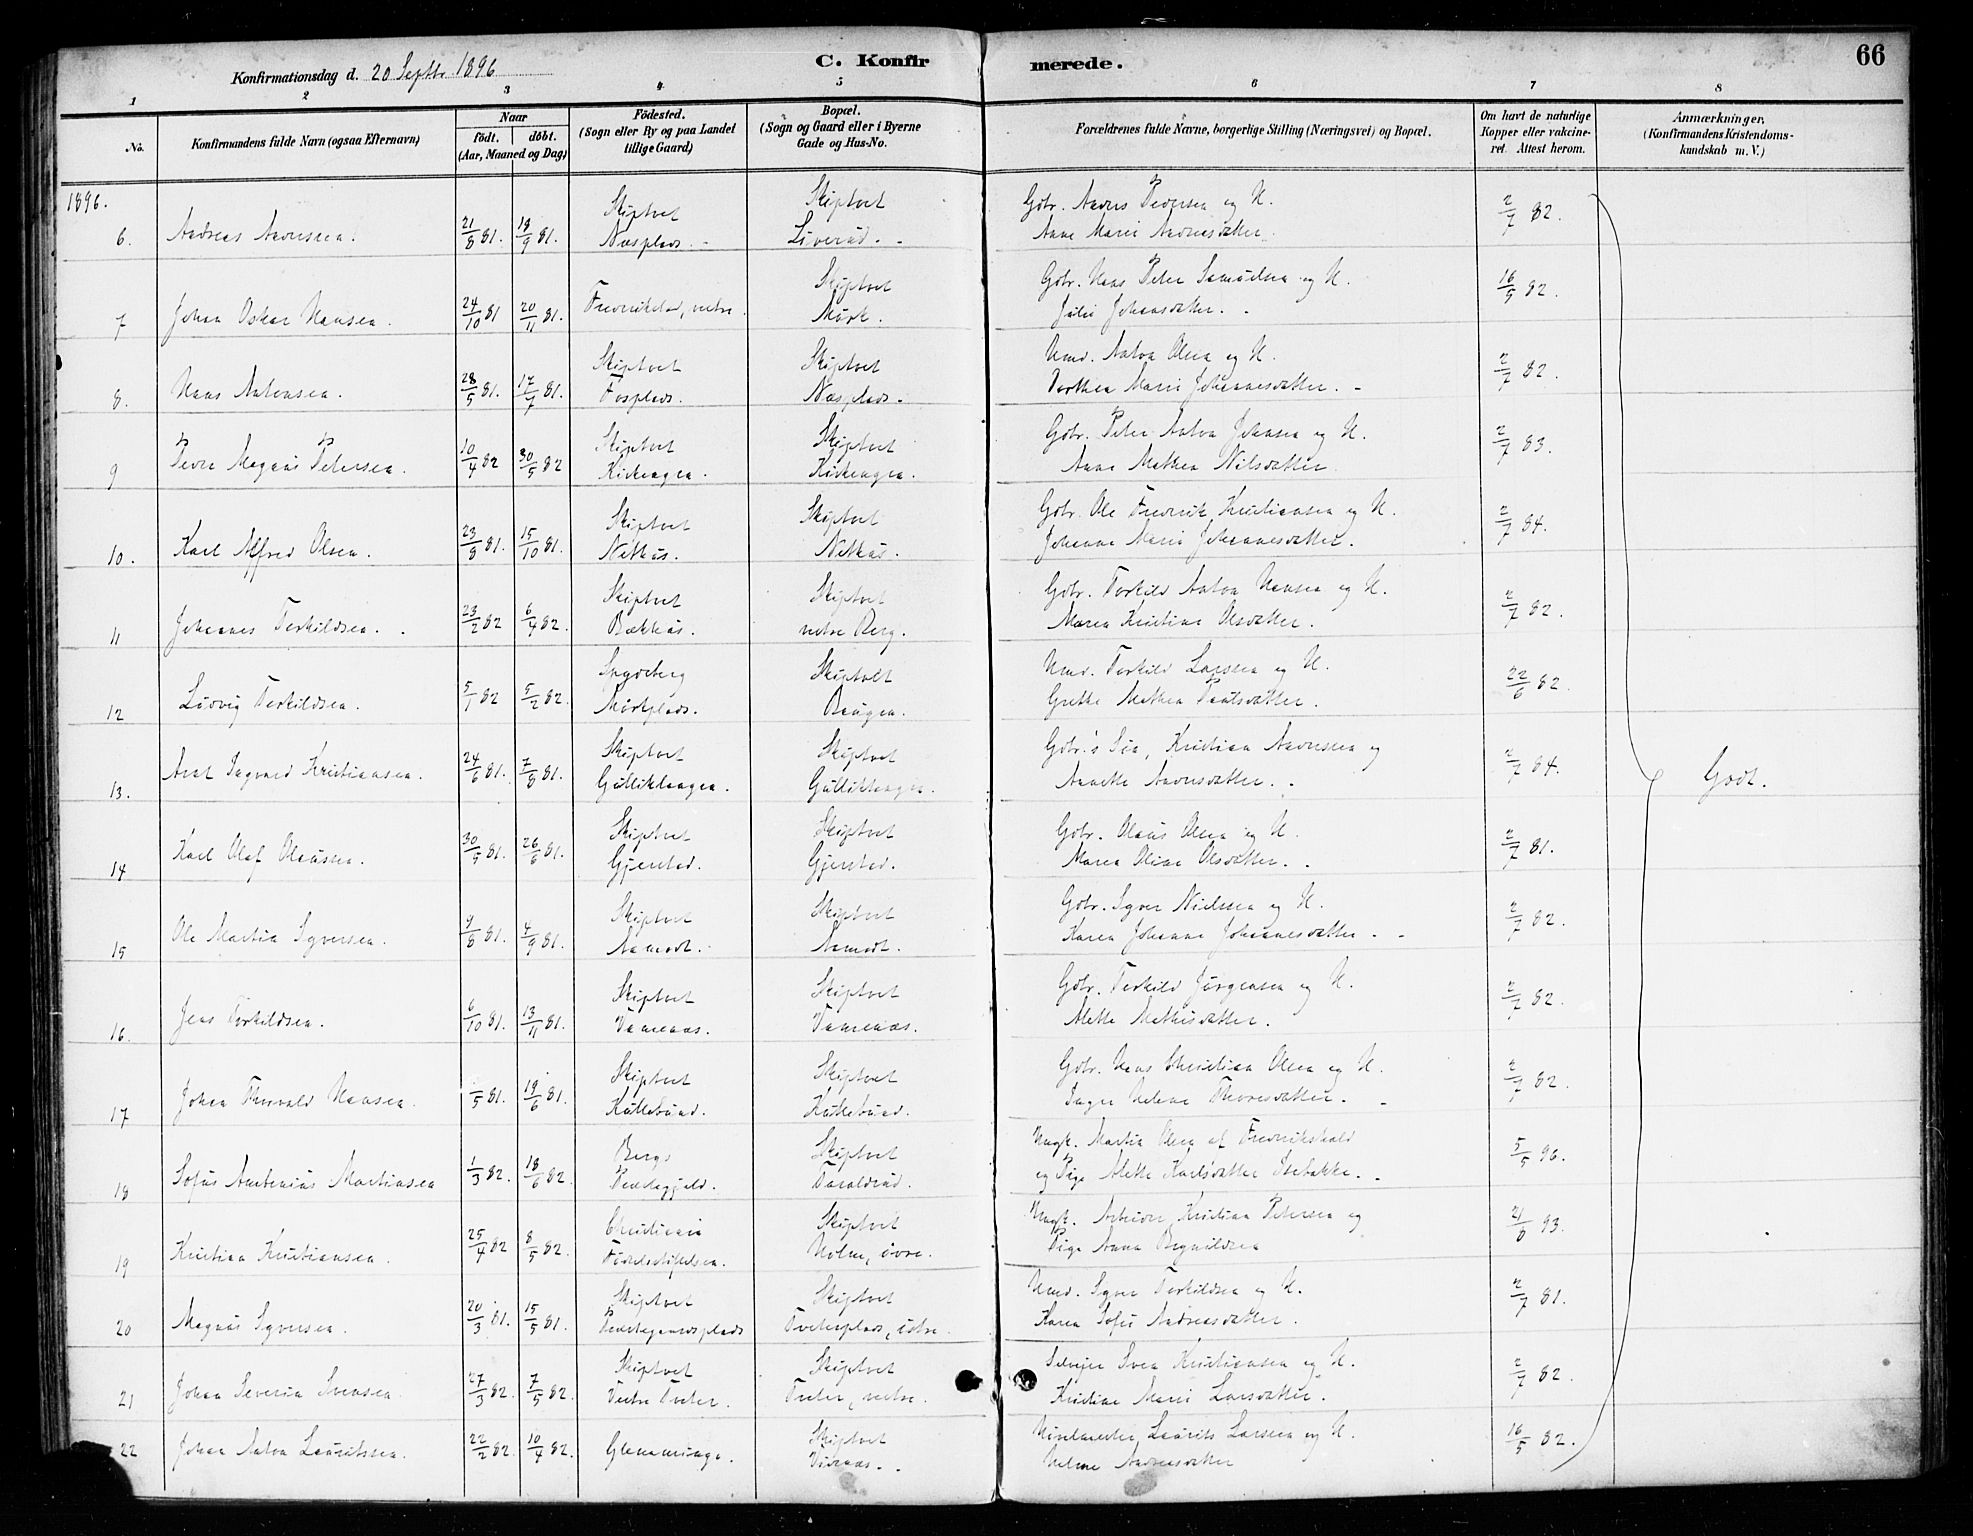 Konfirmationsdag d. 20 Septbr. 1896
C. Konfirmerede.
66
1 2 3 4 5 6 7 8
No.
Konfirmandens fulde Navn (ogsaa Efternavn)
Naar
födt. döbt.
(Aar, Maaned og Dag)
Födested.
(Sogn eller By og paa Landet
tillige Gaard)
Bopæl.
(Sogn og Gaard eller i Byerne
Gade og Hus-No.
Forældrenes fulde Navne, borgerlige Stilling (Næringsvei) og Bopæl.
Om havt de naturlige
Kopper eller vakcine-
ret. Attest herom.
Anmærkninger.
(Konfirmandens Kristendoms-
kundskab m. V.)
1896.
6. Andreas Aavnsen. 21/8 81. 18/9 81. Skiptvet Næsplads. Skiptvet Gbr. Pedersen og H. Anne Marie Andreasdatter. 2/7 82.
7 Johan Oskar Hansen. 24/10 81 20/11 81. Fredrikstad, vestre. Skiptvet Mørk. Gbr. Hans Peter Samuelsen og H. Julie Johansdatter. 16/9 82.
8. Hans Antonsen. 28/5 81. 17/7 81. Skiptvet Fosplads. Skiptvet Næsplads. Hmd. Anton Olsen og H. Dorthea Marie Johannesdatter. 2/7 82.
9 Peder Magnus Petersen. 10/4 82 30/5 82 Skiptvet Kirkengen. Skiptvet Kirkengen. Gbr. Peter Anton Johnsen og H. Anne Mathea Nilsdatter 2/7 83.
10. Karl Alfred Olsen. 23/8 81. 15/10 81. Skiptvet Skiptvet Gbr. Ole Fredrik Kristiansen og H. Johanne Marie Johannesdatter. 2/7 84.
11 Johannes Torkildsen. 23/2 82 6/4 82. Skiptvet Bækhus. Skiptvet vestre Berg. Gbr. Torkild Anton Hansen og H. Maren Kristine Olsdatter. 2/7 82.
12 Ludvig Torkildsen. 5/1 82 5/2 82. Spydeberg Mörkplads. Skiptvet Haugen. Hmd. Torkild Larsen og H. Grethe Mathea Paulsdatter. 22/6 82.
13. Axel Sigvard Kristiansen. 24/6 81. 7/8 81. Skiptvet Gullikhaugen. Skiptvet Gullikhaugen. Gbr.'s Søn, Kristian Aavnsen og Annette Aavnsdatter. 2/7 84.
14 Karl Olaf Olausen. 30/5 81. 26/6 81. Skiptvet Gjerstad. Skiptvet Gjerstad. Gbr. Olaus Olsen og H. Maren Oline Olsdatter. 2/7 81.
15 Ole Martin Syversen. 4/8 81. 4/9 81. Skiptvet Aamodt. Skiptvet Aamodt. Gbr. Syver Nielsen og H. Karen Johanne Johannesdatter. 2/7 82.
16. Jens Torkildsen. 6/10 81. 13/11 81. Skiptvet Vammenæs. Skiptvet Vammenæs. Gbr. Torkild Jørgensen og H. Alette Mathisdatter. 2/7 82.
17 Johan Thorvald Hansen. /5 81. 19/6 81. Skiptvet Kullebund. Skiptvet Kullebund. Gbr. Hans Christian Olsen og H. Inger Helene Thoresdatter. 2/7 82.
18 Sofus Antonius Martinsen 1/3 82. 18/6 82. Bergs Præstegjeld. Skiptvet Taraldrud. Ungk. Martin Olsen af Fredrikshald og Pige Alette Karlsdatter Isebakke. 5/5 96.
19 Kristian Kristiansen. 25/4 82 8/5 82. Christiania Födselsstiftelsen. Skiptvet Holm, övre. Ungk. Arbeider Kristian Petersen og Pige Anna 21/6 93.
20 Magnus Syversen. 20/3 81. 15/5 81. Skiptvet Præstegaardsplads Skiptvet Tveterplads, östre. Hmd. Syver Torkildsen og H. Karen Sofie Andreasdatter. 2/7 81.
21 Johan Severin Svensen. 27/3 82. 7/5 82. Skiptvet Vestre Tveter. Skiptvet Tveter, vestre. Selveier Sven Kristiansen og H. Kristine Marie Larsdatter. 2/7 82.
22 Johan Anton Lauritsen. 22/2 82. 10/4 82. Glemminge. Skiptvet Vidnæs. Laurits Larsen og H. Helene Andreasdatter 16/5 82.
Godt.